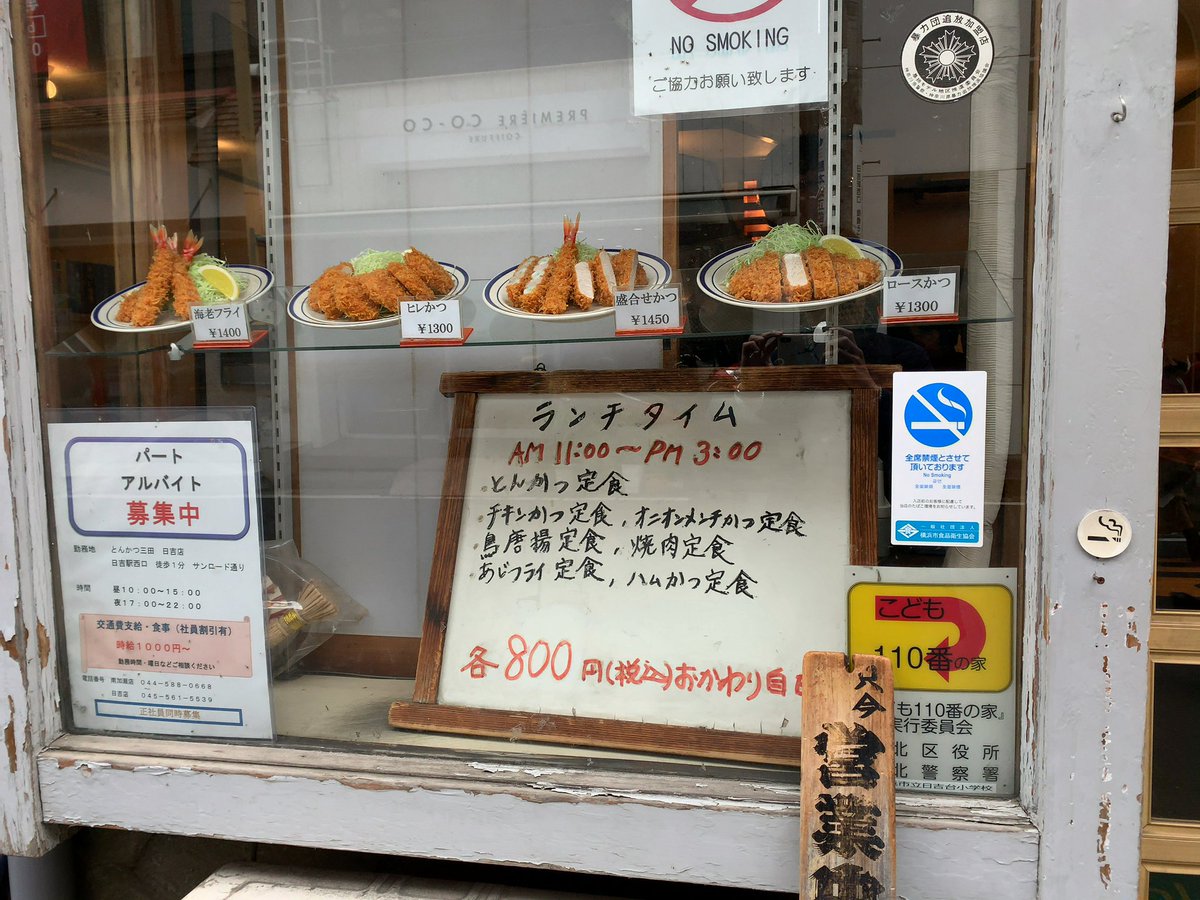 NO SMOKING
ご協力お願い致します
暴力団追放加盟店
PREMIÈRE CO-CO
COIFFURE
海老フライ
¥1400
ヒレかつ
¥1300
盛合せかつ
¥1450
ロースかつ
¥1300
ランチタイム
AM 11:00〜PM 3:00
とんかつ定食
チキンかつ定食, オニオンメンチかつ定食
鳥唐揚定食, 焼肉定食
あじフライ定食, ハムかつ定食
各800円(税込)おかわり自
パート
アルバイト
募集中
勤務地 とんかつ三田 日吉店
日吉駅西口 徒歩1分 サンロード通り
時間 昼10:00〜15:00
夜17:00〜22:00
交通費支給・食事(社員割引有)
時給1000円〜
勤務時間・曜日などご相談ください
電話番号 南加瀬店 044-588-0668
〜
日吉店 045-561-5539
正社員同時募集
全席禁煙とさせて
頂いております
No Smoking
全面禁烟 全面禁煙
入店前のお客様に配慮して
当店のたばこ環境をお知らせしています。
一般社団法人
横浜市食品衛生協会
こども
110番の家
も110番の家』
実行委員会
北区役所
北警察署
市立日吉台小学校
只今
営業中